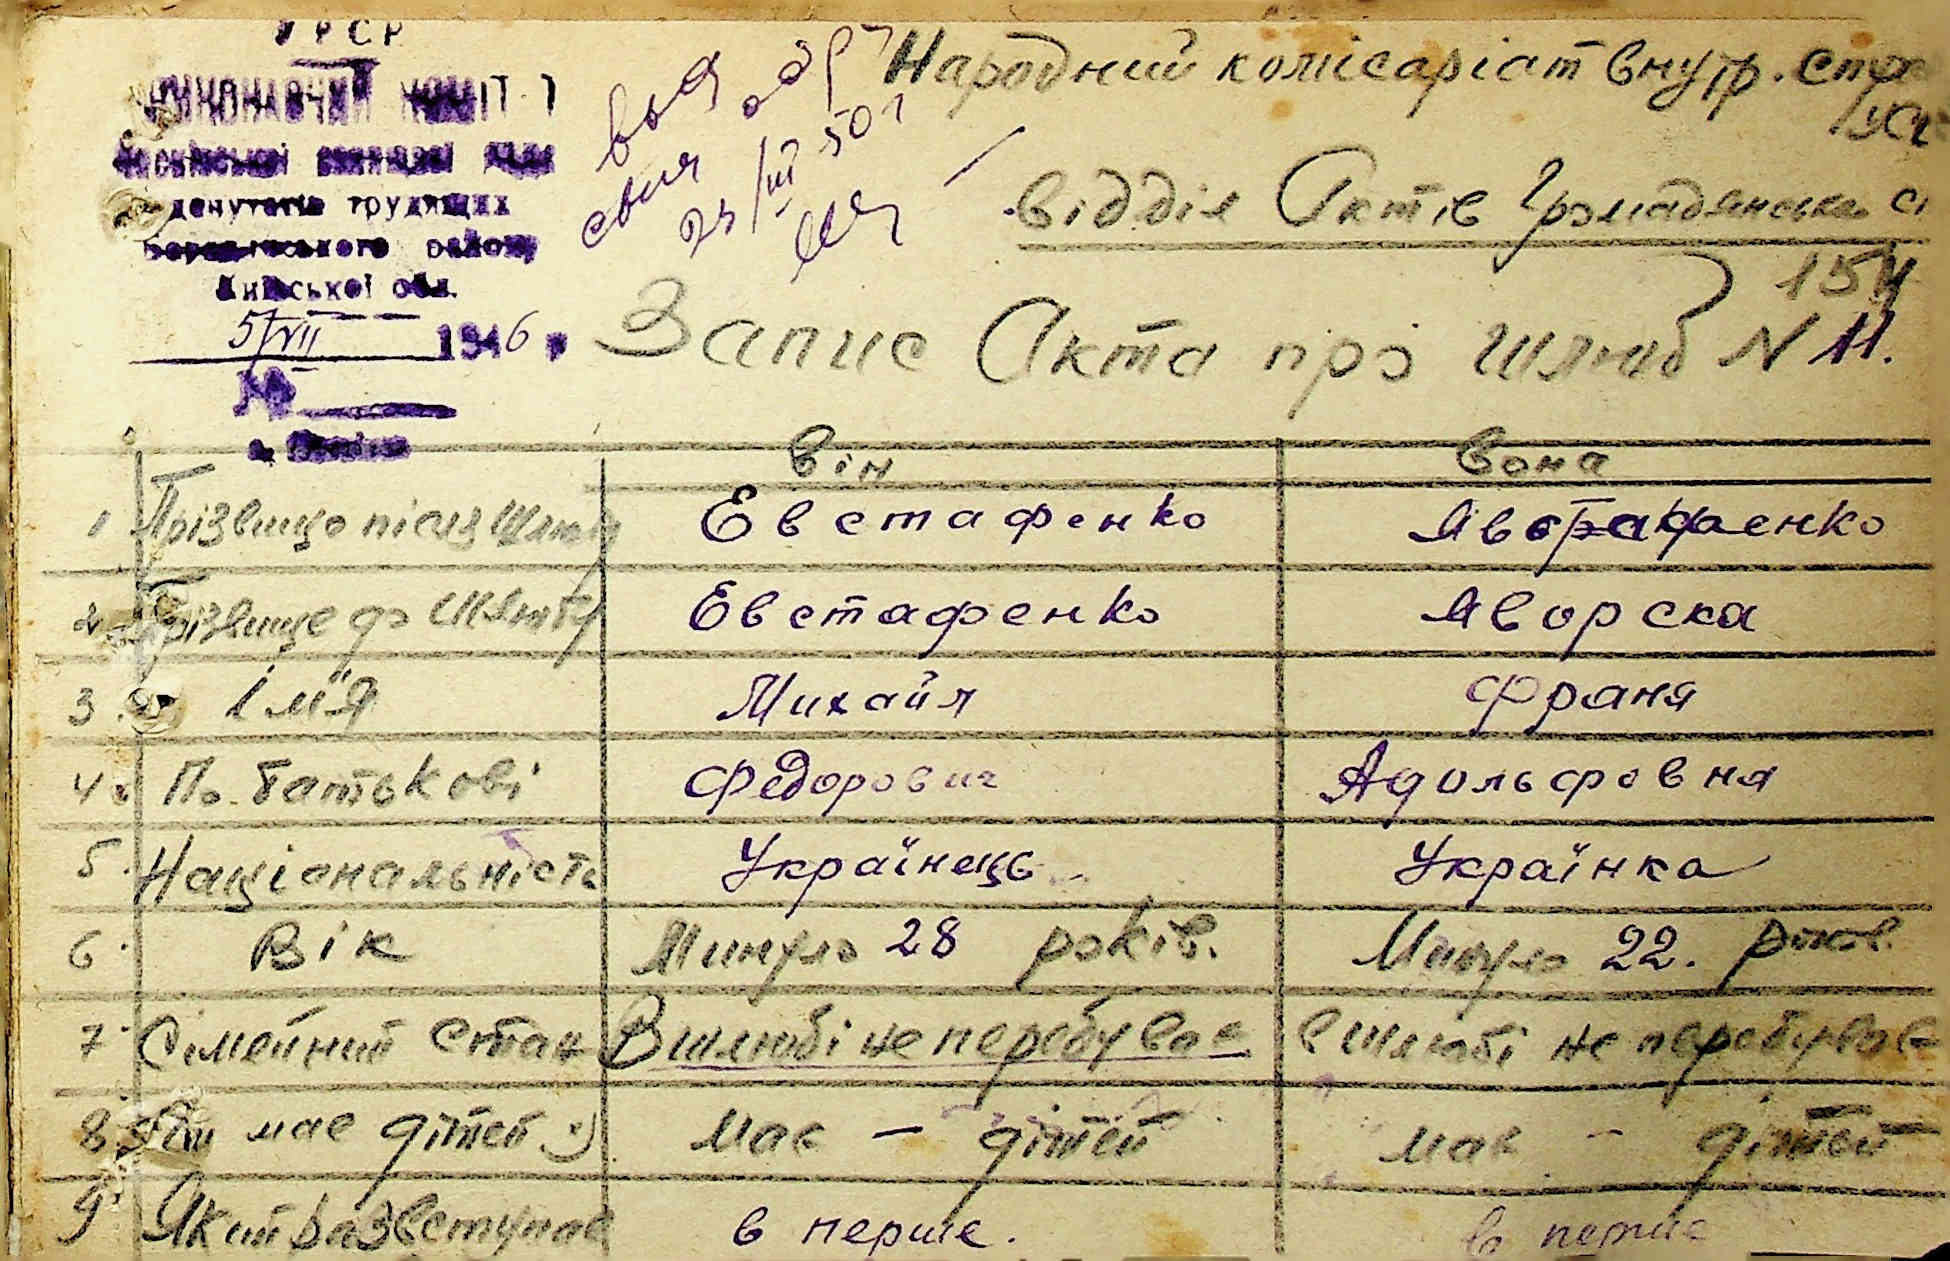 УРСР
ВИКОНАВЧИЙ КОМІТЕТ
депутатів трудящих
району
Київської обл.
5/VII 1946 р.
№
Народний комісаріат внутр. справ
відділ Актів Громадянського
154
Запис Акта про шлюб N 11.
він вона
1 Прізвище після шлюбу Евстафенко
2 Прізвище до шлюбу Евстафенко Яворска
3. Ім'я Михайл Франя
4. По батькові Федорович Адольфовна
5. Національність Українець Українка
6. Вік Минуло 28 років. Минуло 22. років.
7 Сімейний стан В шлюбі не перебував в шлюбі не перебував
8 має дітей має — дітей має — дітей
9 Який раз вступає в перше. в перше